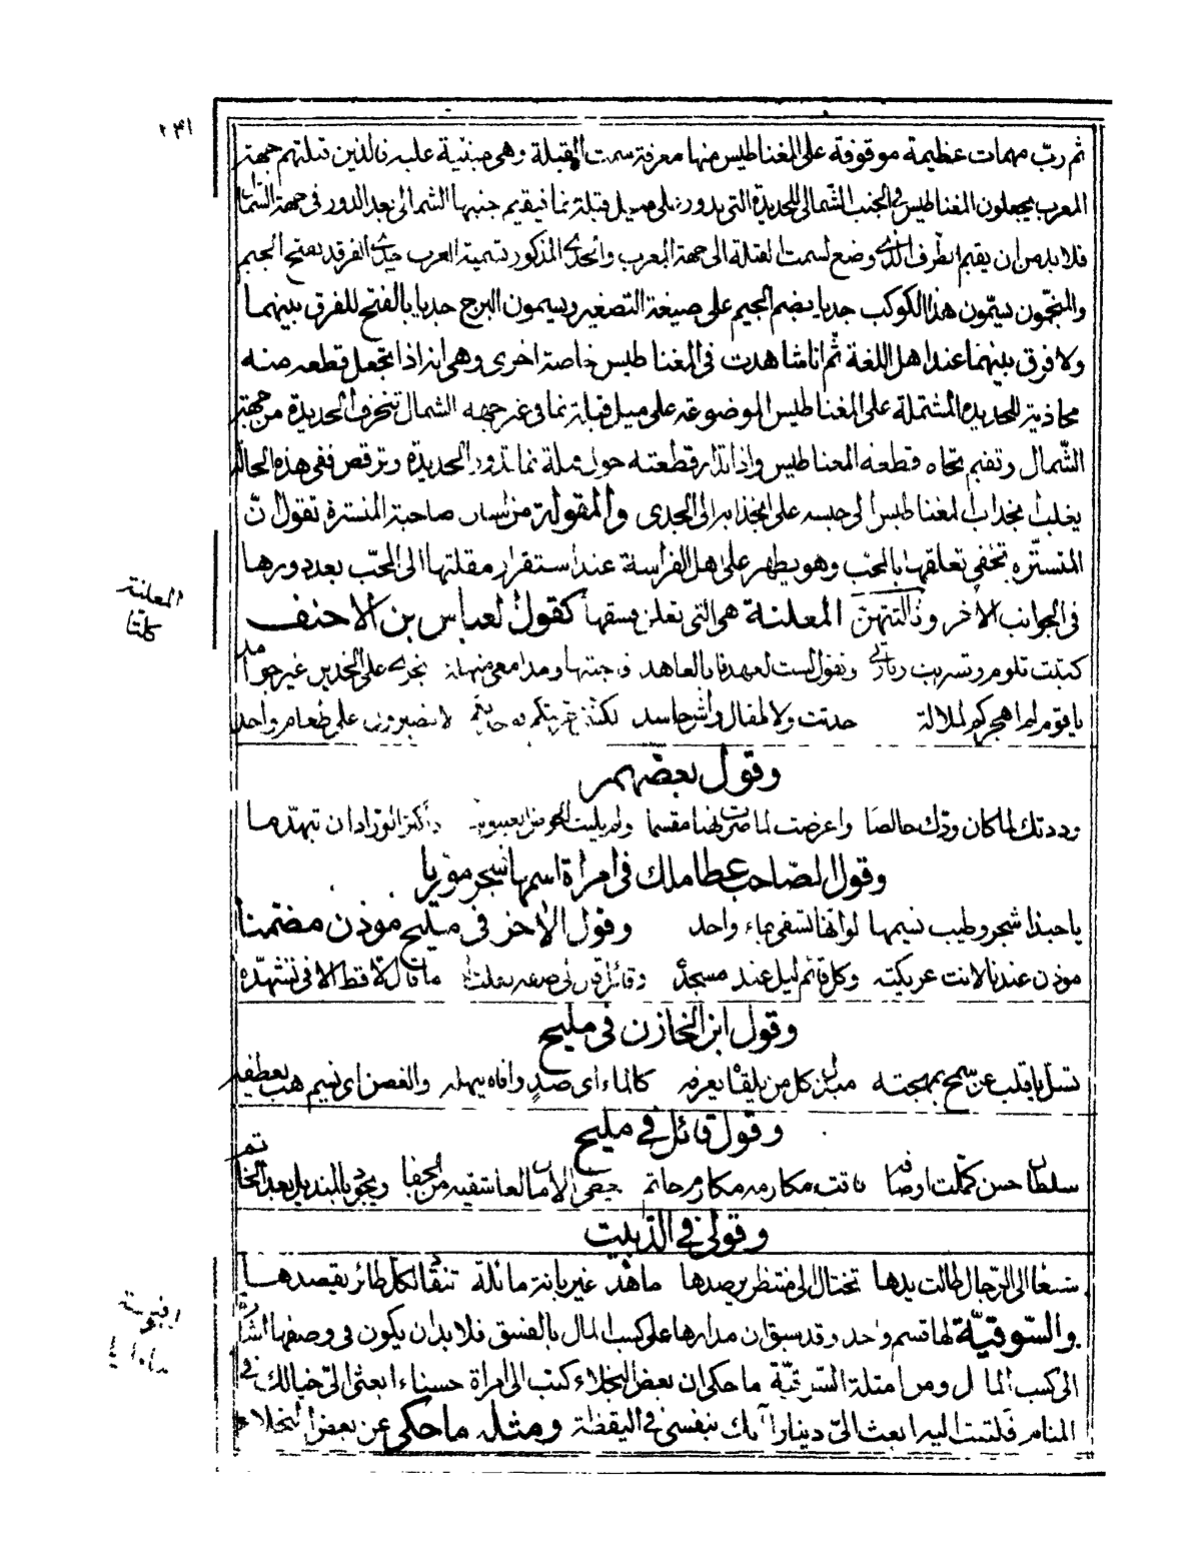 ٢٣١
ثم ربّ مهمات عظيمة موقوفة على المغناطيس منها معرفة سمت القبلة وهى مبنية عليه فالذين قبلتهم جهة
المغرب يجعلون المغناطيس فى الجنب الشمالى للحديدة التى يدور على ميل قبلة نما فيقيم جنبها الشمالى بعد الدور فى جهة الشمال
فلا بد من ان يقيم الطرف الذى وضع لسمت القبلة الى جهة المغرب والجدى المذكور تسمية العرب جدى الفرقد بفتح الجيم
والمنجّمون يسمّون هذا الكوكب جديا بضم الجيم على صيغة التصغير ويسمون البرج جديا بالفتح للفرق بينهما
ولا فرق بينهما عند اهل اللغة ثم انا شاهدت فى المغناطيس خاصة اخرى وهى انه اذا تجعل قطعه منه
محاذية للحديدة المشتملة على المغناطيس الموضوعة على ميل قبلة نما فى غير جهه الشمال تنحرف الحديدة من جهة
الشّمال وتقيم تجاه قطعه المغناطيس واذا تدار قطعته حول قبلة نما تدور الحديدة وترقص ففى هذه الحالة
يغلب انجذاب المغناطيس الى جنسه على انجذابه الى الجدى والمقولة من لسان صاحبة المتسترة تقول انّ
المتستّره تخفى تعلقها بالمحب وهو يظهر على اهل الفراسة عند استقرار مقلتها الى المحّب بعد دورها
فى الجوانب الأخر المعلنة هى التى تعلن فسقها كقول العباس بن الاحنف
المعلنة
كتبت تلوم وتقول لست لعهدنا بالعاهد فاجبتها ومدامعى منهلة تجرى على الخدين غير جوامد
يا قوم لم اهجركم لملالة حدثت ولا لمقال واش حاسد لكننى جربتكم فوجدتكم لا تصبرون على طعام واحد
وقول بعضهم
وددتك لما كان ودّك خالصا واعرضت لما صرت نهبا مقسما ولم يلبث الحوض على كثرة الورّاد ان يتهدّما
وقول الصّاحب عطا ملك فى امراة اسمها شجر موريا
يا حبذا شجر وطيب نسيمها لو انها تسقى بماء واحد وقول الأخر فى مليح موذن مضمنا
موذن عندنا لانت عريكته وكل قائم ليل عند مسجده وقائل قال لى صفه فقلت له ما قال لا قط الا فى تشهّده
وقول ابن الخازن فى مليح
تسلّ يا قلب عن سمح بمهجته مبتذل كل من يلقاه يعرفه كالماء اى صدٍ وافاه ينهله والغصن اى نسيم هب يعطفه
وقول قائل فى مليح
سلطان حسن كمّلت اوصافه فاقت مكارمه مكارم حاتم يعطى الامان لعاشقيه من الجفا
وقولى فى الدّبيت
تسعى الى الرّجال طالت يدها تختال لى منتظر يرصدها ما هذه غير بانة مائلة تنقاد لكل طائر يقصدها
والسّوقيّة لها قسم واحد وقد سبق ان مدارها على كسب المال بالفسق فلا بد ان يكون فى وصفها اشارة
الى كسب المال ومن امثلة السّوقيّة ما حكى ان بعض البخلاء كتب الى امراة حسناء ابعثى الىّ خيالك فى
المنام فكتبت اليه ابعث الىّ دينارا آتك بنفسى فى اليقظة ومثله ما حكى عن بعض البخلاء